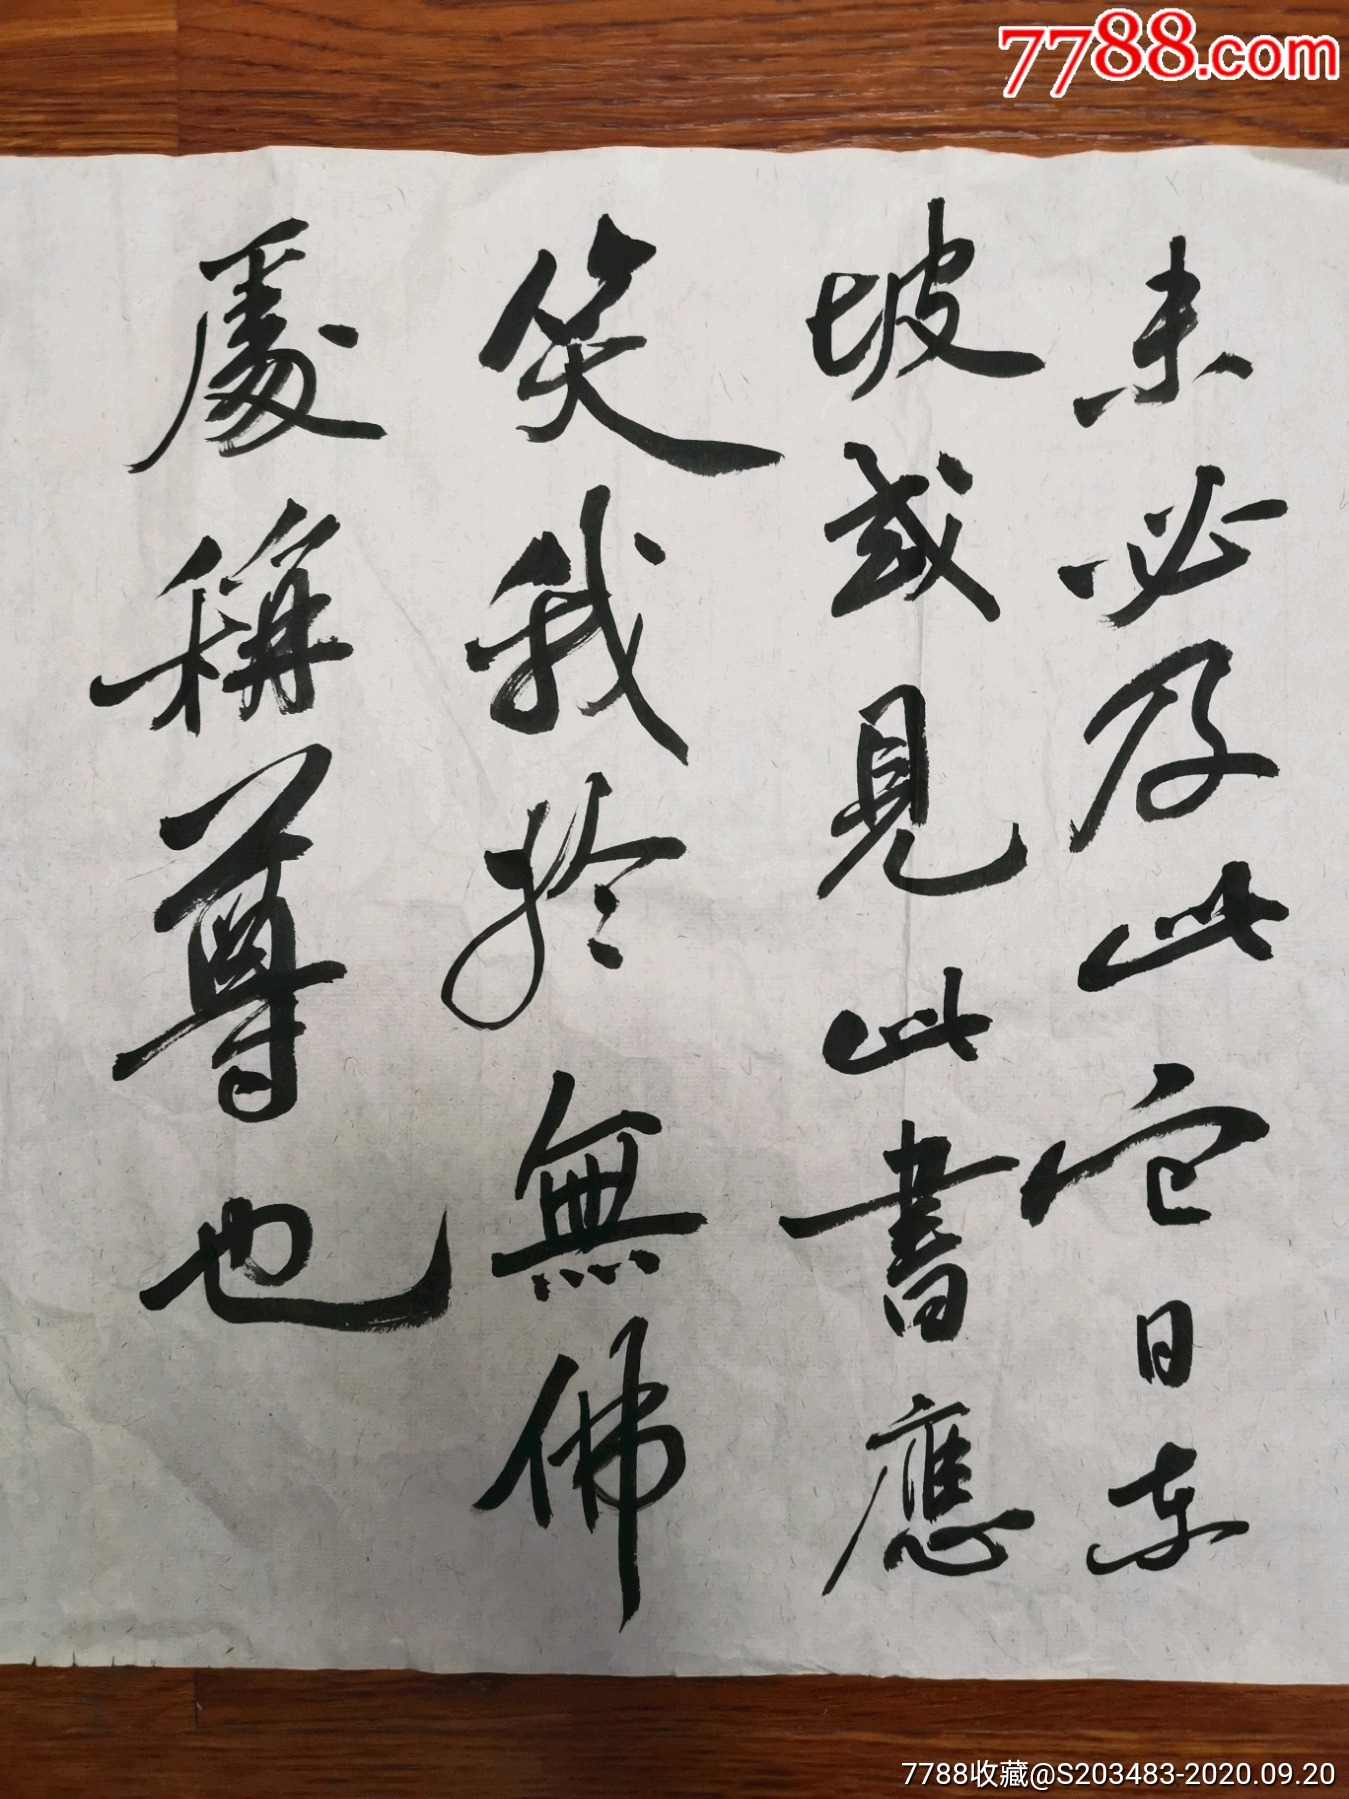 7788.com
未必及此它日东
坡或見此書應
笑我於無佛
處稱尊也
7788收藏@S203483-2020.09.20